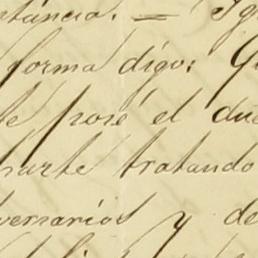 ntáncia. = Igu
forma digo: Q
te posé el due
parte tratando
versarios y de